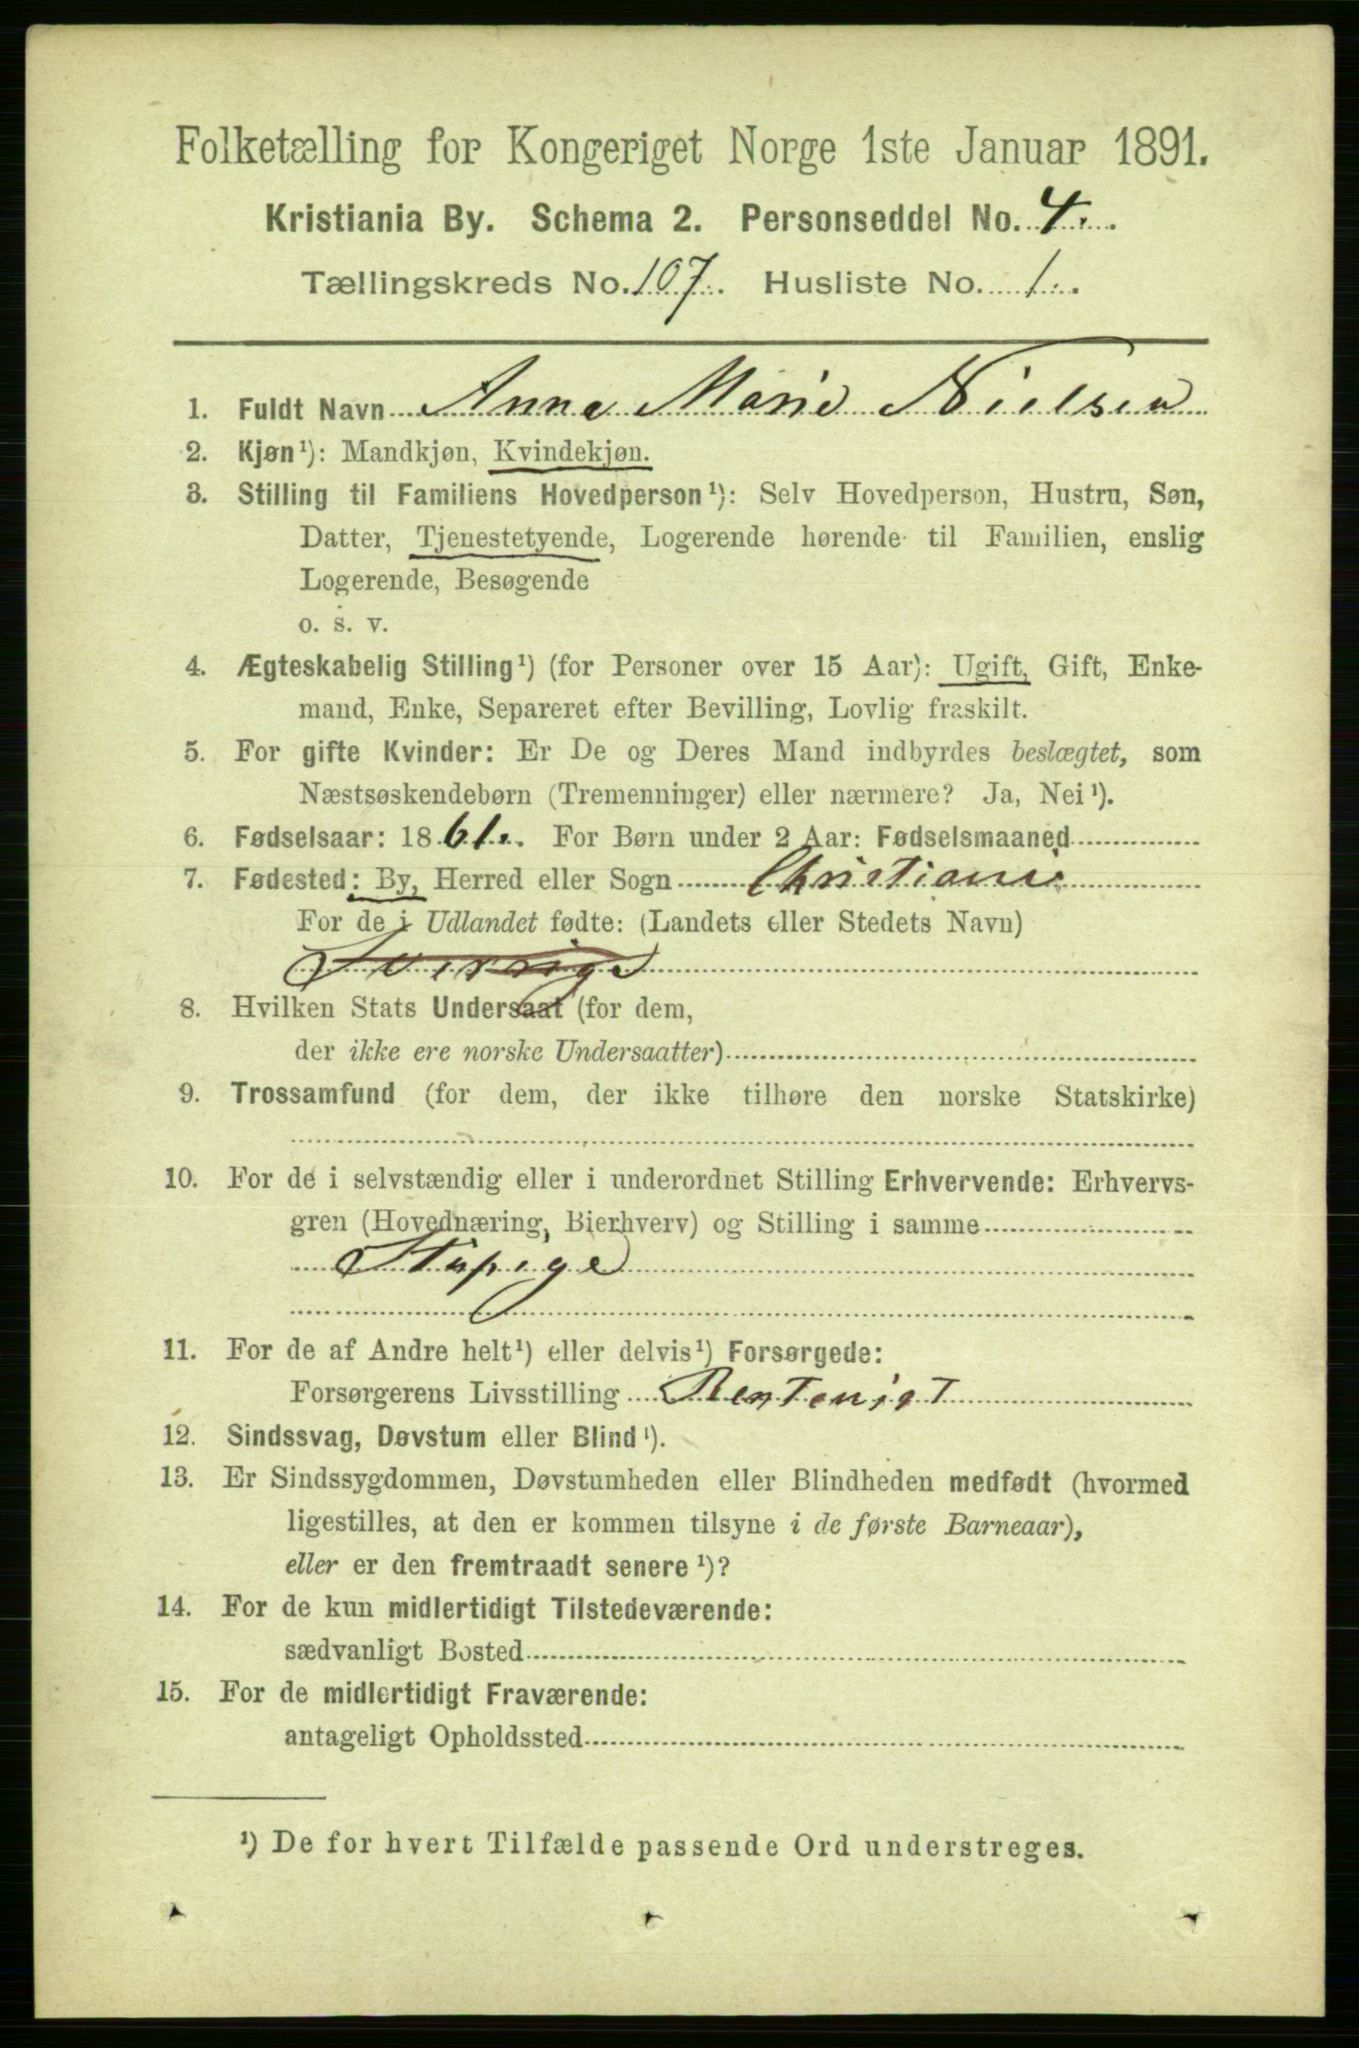 Folketælling for Kongeriget Norge 1ste Januar 1891.
Kristiania By. Schema 2. Personseddel No. 4.
Tællingskreds No. 107. Husliste No. 1.
1. Fuldt Navn Anna Marie Nielsen
2. Kjøn¹): Mandkjøn, Kvindekjøn.
3. Stilling til Familiens Hovedperson¹): Selv Hovedperson, Hustru, Søn,
Datter, Tjenestetyende, Logerende hørende til Familien, enslig
Logerende, Besøgende
o. s. v.
4. Ægteskabelig Stilling¹) (for Personer over 15 Aar): Ugift, Gift, Enke-
mand, Enke, Separeret efter Bevilling, Lovlig fraskilt.
5. For gifte Kvinder: Er De og Deres Mand indbyrdes beslægtet, som
Næstsøskendebørn (Tremenninger) eller nærmere? Ja, Nei¹).
6. Fødselsaar: 1861. For Børn under 2 Aar: Fødselsmaaned
7. Fødested: By, Herred eller Sogn Christiani
For de i Udlandet fødte: (Landets eller Stedets Navn)
Sverrige
8. Hvilken Stats Undersaat (for dem,
der ikke ere norske Undersaatter)
9. Trossamfund (for dem, der ikke tilhøre den norske Statskirke)
10. For de i selvstændig eller i underordnet Stilling Erhvervende: Erhvervs-
gren (Hovednæring, Bierhverv) og Stilling i samme
Stupige
11. For de af Andre helt¹) eller delvis¹) Forsørgede:
Forsørgerens Livsstilling Rentenist
12. Sindssvag, Døvstum eller Blind¹).
13. Er Sindssygdommen, Døvstumheden eller Blindheden medfødt (hvormed
ligestilles, at den er kommen tilsyne i de første Barneaar),
eller er den fremtraadt senere¹)?
14. For de kun midlertidigt Tilstedeværende:
sædvanligt Bosted
15. For de midlertidigt Fraværende:
antageligt Opholdssted
¹) De for hvert Tilfælde passende Ord understreges.